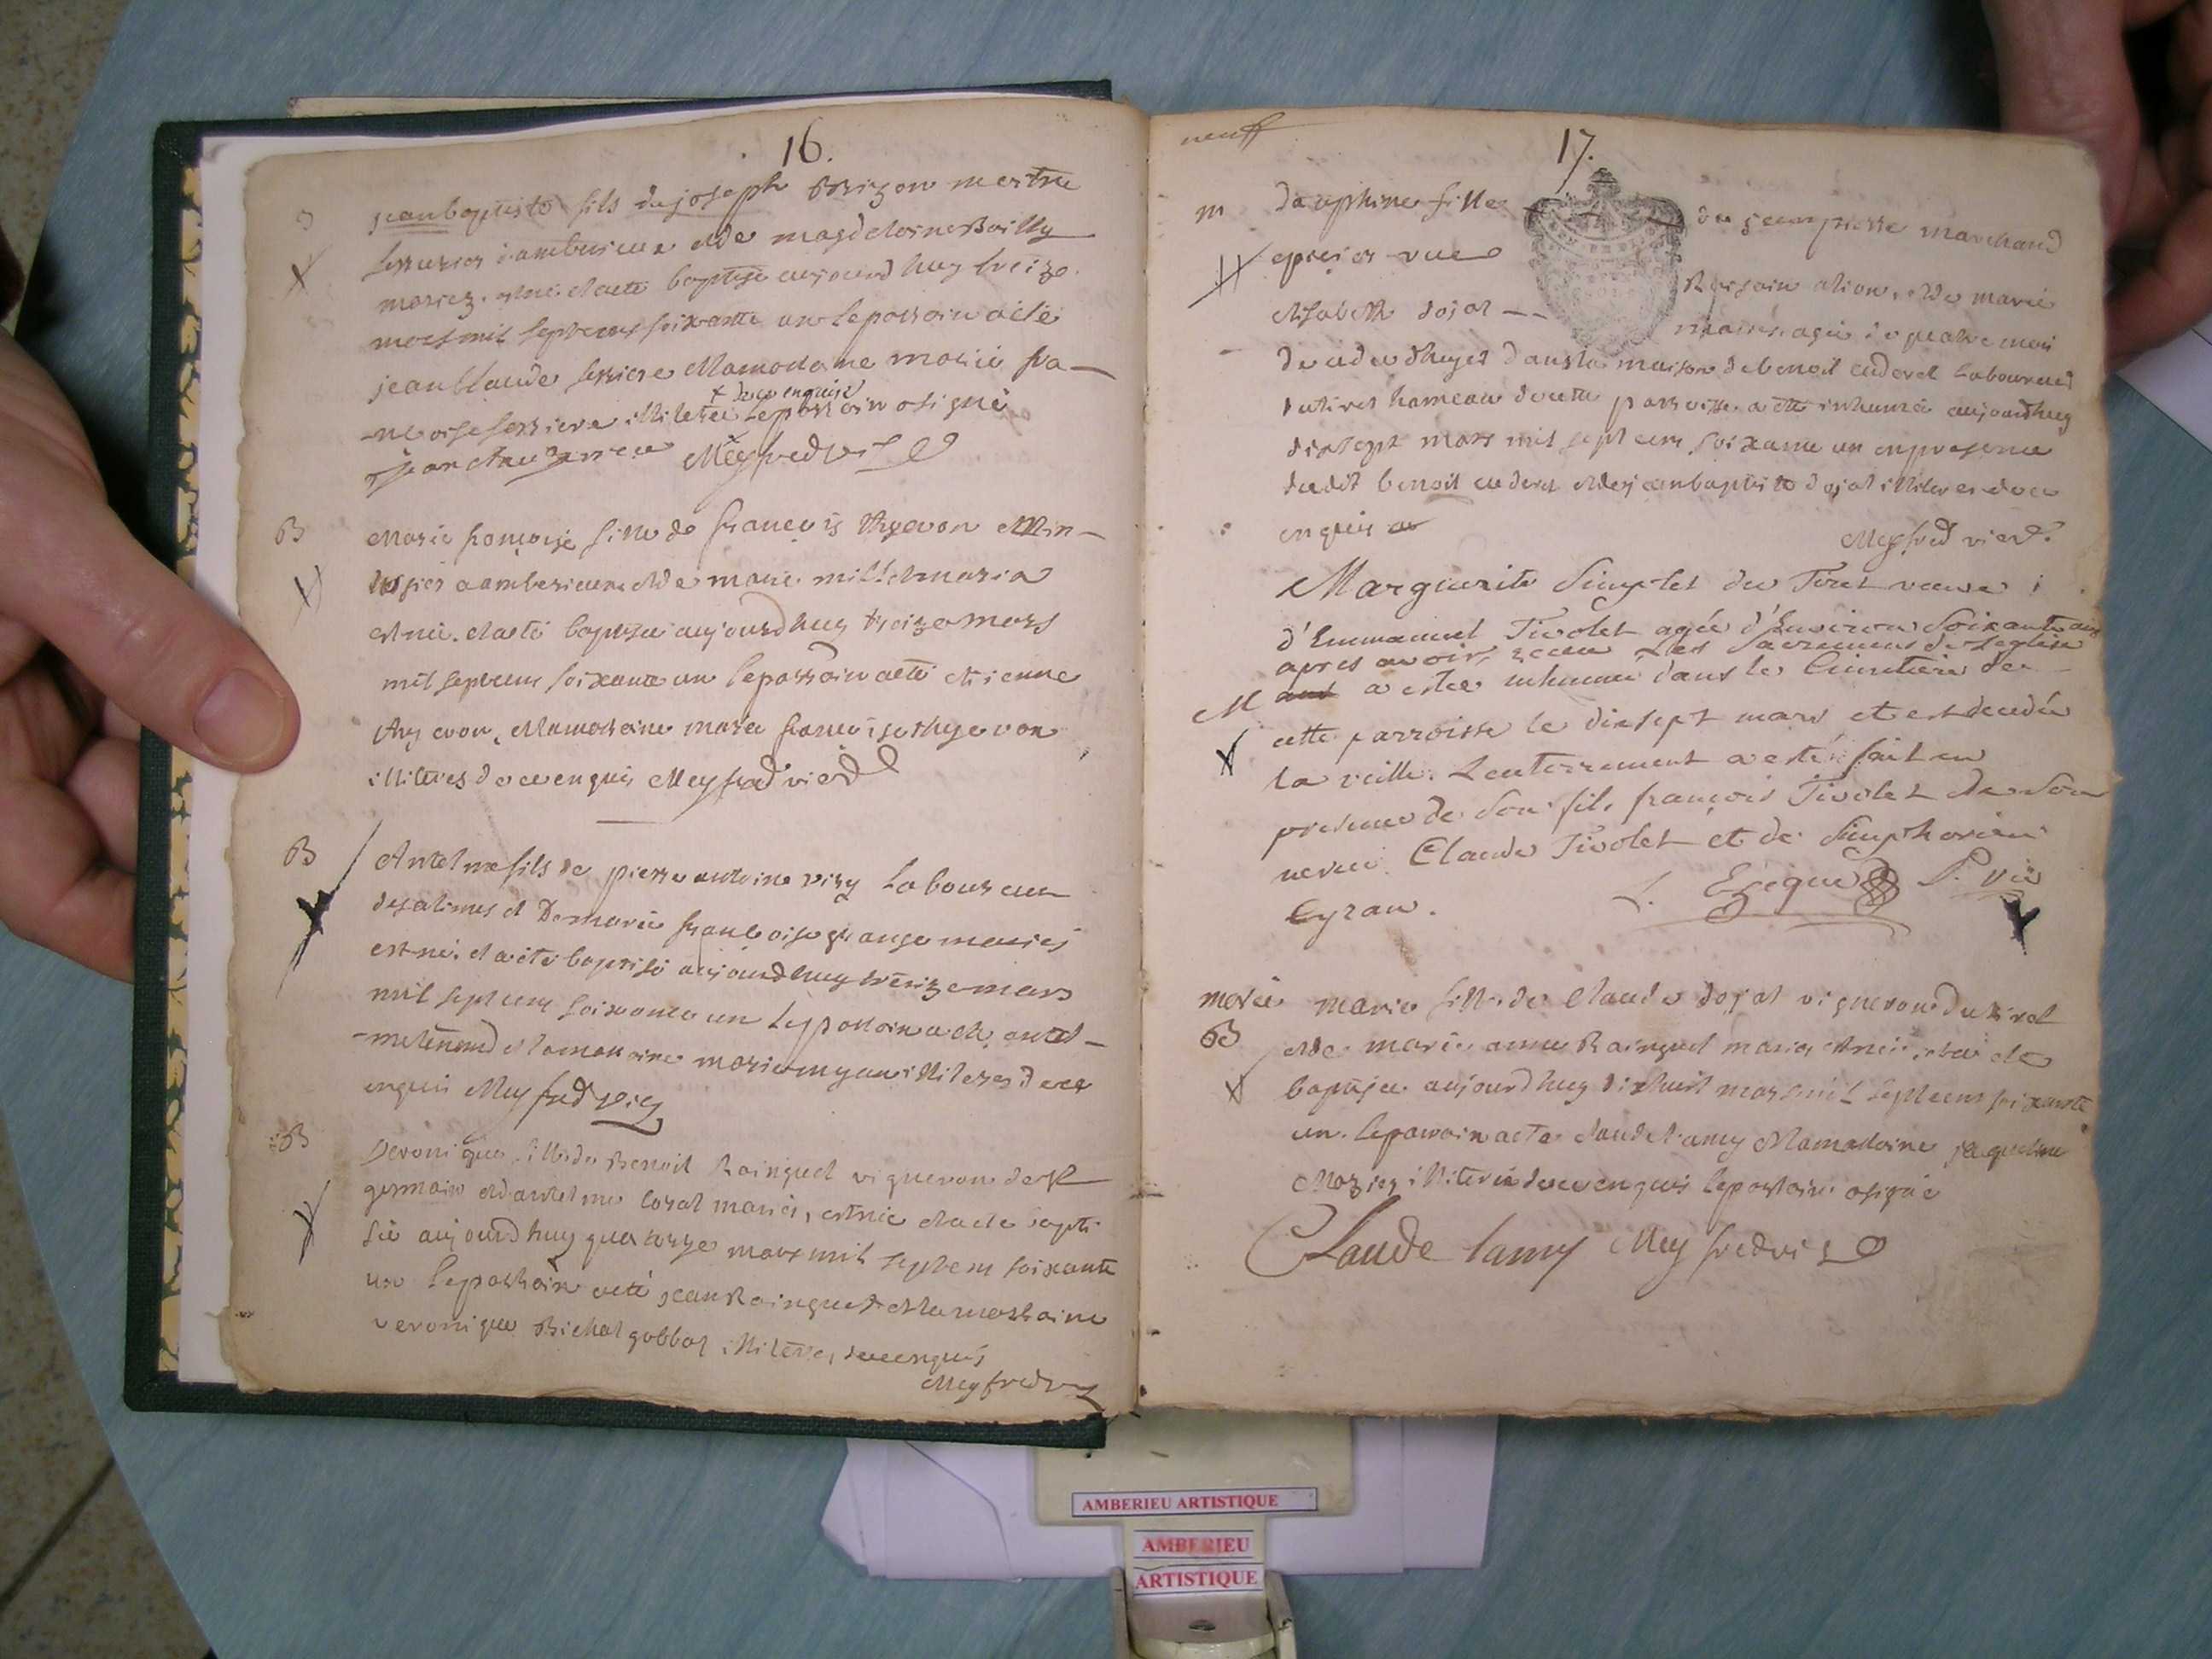 16.
jean baptiste fils de joseph Brizon mestre
serrurier dambericux et de magdeleine Boilly
mariez. est né et a eté baptisé aujourd huy treize
mars mil sept cens soixante un le parrain a eté
jean Claude ferriere et la marraine marie fra-
+ de ce enquise
-ncoise ferriere illiterée le parrain a signé
jean claude ferriere Meyfred vic
B marie françoise fille de françois thyevon
a ambericux et de marie
est née. et a eté baptisée aujourdhuy treize mars
mil sept cens soixante un le parrain a eté etienne
thyevon, et la marraine marie françoise thyevon
illiteres de ce enquis Meyfred vic
B Antelme fils de pierre antoine viry Laboureur
des alimes et De marie françoise grange mariés
est né. et a eté baptisé aujourdhuy treize mars
mil sept cens soixante un le parrain a eté antel-
-me et la marraine marie illiteres de ce
enquis Meyfred vic
B Veronique fille de Benoit Rainguet vigneron de st
germain et d'antelme mariés, est née et a eté bapti-
sée aujourdhuy quatorze mars mil sept cens soixante
un le parrain a eté jean Rainguet et la marraine
veronique Bichat illiteres, de ce enquis
Meyfred vic
neuff
17.
m dauphine fille de jean pierre marchand
epicier rue alion, et de marie
elisabeth dojat -- mariés, agée de quatre mois
decedée d'huyer dans la maison de benoit cuderel Laboureur
du tiret hameau de cette parroisse a eté inhumée aujourdhuy
dixsept mars mil sept cens soixante un en presence
dudit benoit cuderel et de jean baptiste dojat illiteres de ce
enquis
Meyfred vic
Marguerite Simplet du Tiret veuve
d'Emmanuel Tivolet agée d'Environ Soixante ans
apres avoir receu Les Sacremens de Leglise
M a estée inhumée dans le Cimetiere de
cette parroisse le dixsept mars et est decedée
la veille. Lenterrement a esté fait en
presence de Son fils françois Tivolet de Son
neveu Claude Tivolet et de Simphorien
Cyran. L. Ezéquel P. vic
marie marie fille de Claude dojat vigneron du tiret
B et de marie anne Rainguet mariés est née, et a eté
baptisée aujourdhuy dixhuit mars mil sept cens soixante
un. le parrain a eté claude lamy et la marraine jaqueline
illiterée de ce enquis le parrain a signé
Claude lamy Meyfred vic
AMBERIEU ARTISTIQUE
AMBERIEU
ARTISTIQUE